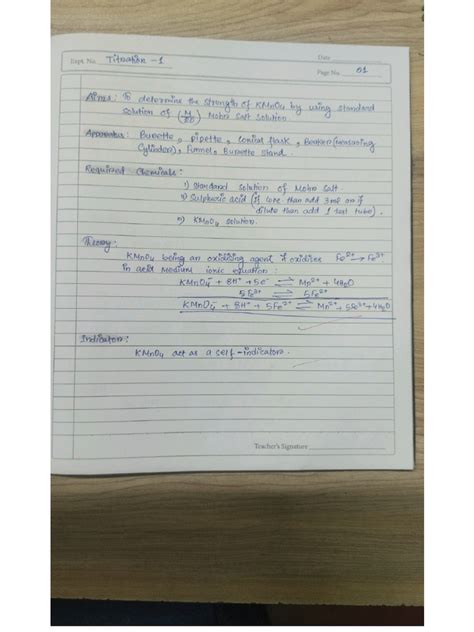 Expt. No. Titration -1
Date
Page No. 01
Aims: To determine the strength of KMnO4 by using standard
solution of (M/20) Mohr salt solution.
Apparatus: Burette, pipette, conical flask, Beaker (measuring
Cylinder), Funnel, Burette Stand.
Required Chemicals:-
1) Standard solution of Mohr Salt.
2) Sulphuric acid (if conc than add 3ml or if
dilute than add 1 test tube).
3) KMnO4 solution.
Theory:
KMnO4 being an oxidising agent it oxidise Fe2+ → Fe3+
in acid medium ionic equation:
KMnO4- + 8H+ + 5e- ⇌ Mn2+ + 4H2O
5Fe2+ ⇌ 5Fe3+
KMnO4- + 8H+ + 5Fe2+ ⇌ Mn2+ + 5Fe3+ + 4H2O
Indicator:
KMnO4 act as a self-indicator.
Teacher's Signature